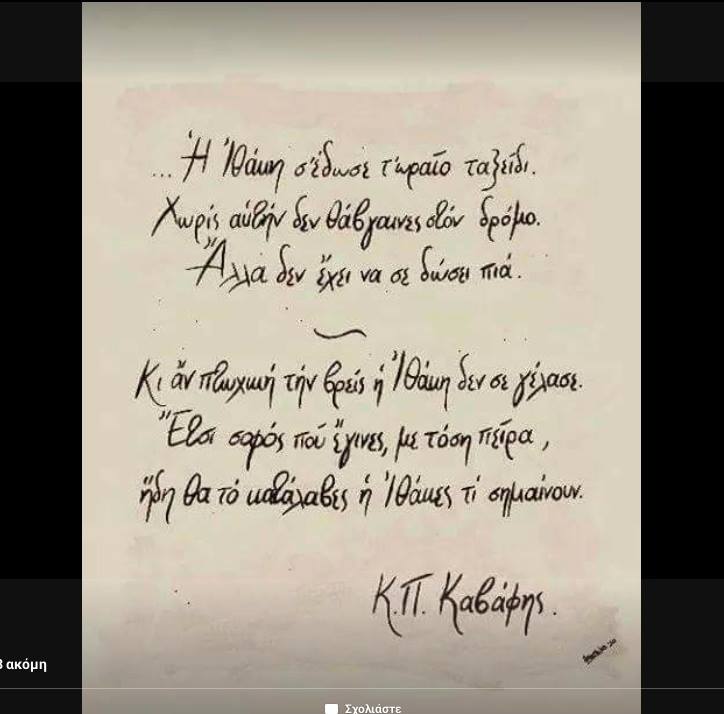 ... Ἡ Ἰθάκη σ' έδωσε τ' ωραῖο ταξεῖδι.
Χωρίς αὐτήν δεν θάβγαινες στόν δρόμο.
Ἄλλα δεν ἔχει να σε δώσει πιά.
Κι ἄν πτωχική τήν βρεῖς ἡ Ἰθάκη δεν σε γέλασε.
Ἔτσι σοφός πού ἔγινες, με τόση πεῖρα,
ἤδη θα τό κατάλαβες ἡ Ἰθάκες τί σημαίνουν.
Κ.Π. Καβάφης.
3 ακόμη
Σχολιάστε